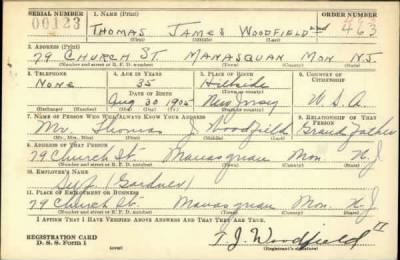 SERIAL NUMBER 1. NAME (Print) ORDER NUMBER
00123 THOMAS JAMES WOODFIELD 2nd 463
(First) (Middle) (Last)
2. ADDRESS (Print)
79 CHURCH ST. MANASQUAN MON N.J.
(Number and street or R. F. D. number) (Town) (County) (State)
3. TELEPHONE 4. AGE IN YEARS 5. PLACE OF BIRTH 6. COUNTRY OF CITIZENSHIP
NONE 35 Hillside
DATE OF BIRTH (Town or county)
Aug 30 1905 New Jersey U.S.A.
(Mo.) (Day) (Yr.) (State or country)
7. NAME OF PERSON WHO WILL ALWAYS KNOW YOUR ADDRESS 8. RELATIONSHIP OF THAT PERSON
Mr. Thomas J. Woodfield Grandfather
(Mr., Mrs., Miss) (First) (Middle) (Last)
9. ADDRESS OF THAT PERSON
79 Church St. Manasquan Mon. N.J.
(Number and street or R. F. D. number) (Town) (County) (State)
10. EMPLOYER'S NAME
Self (Gardner)
11. PLACE OF EMPLOYMENT OR BUSINESS
79 Church St. Manasquan Mon. N.J.
(Number and street or R. F. D. number) (Town) (County) (State)
I AFFIRM THAT I HAVE VERIFIED ABOVE ANSWERS AND THAT THEY ARE TRUE.
REGISTRATION CARD
D. S. S. Form 1 (over) T. J. Woodfield II
(Registrant's signature)